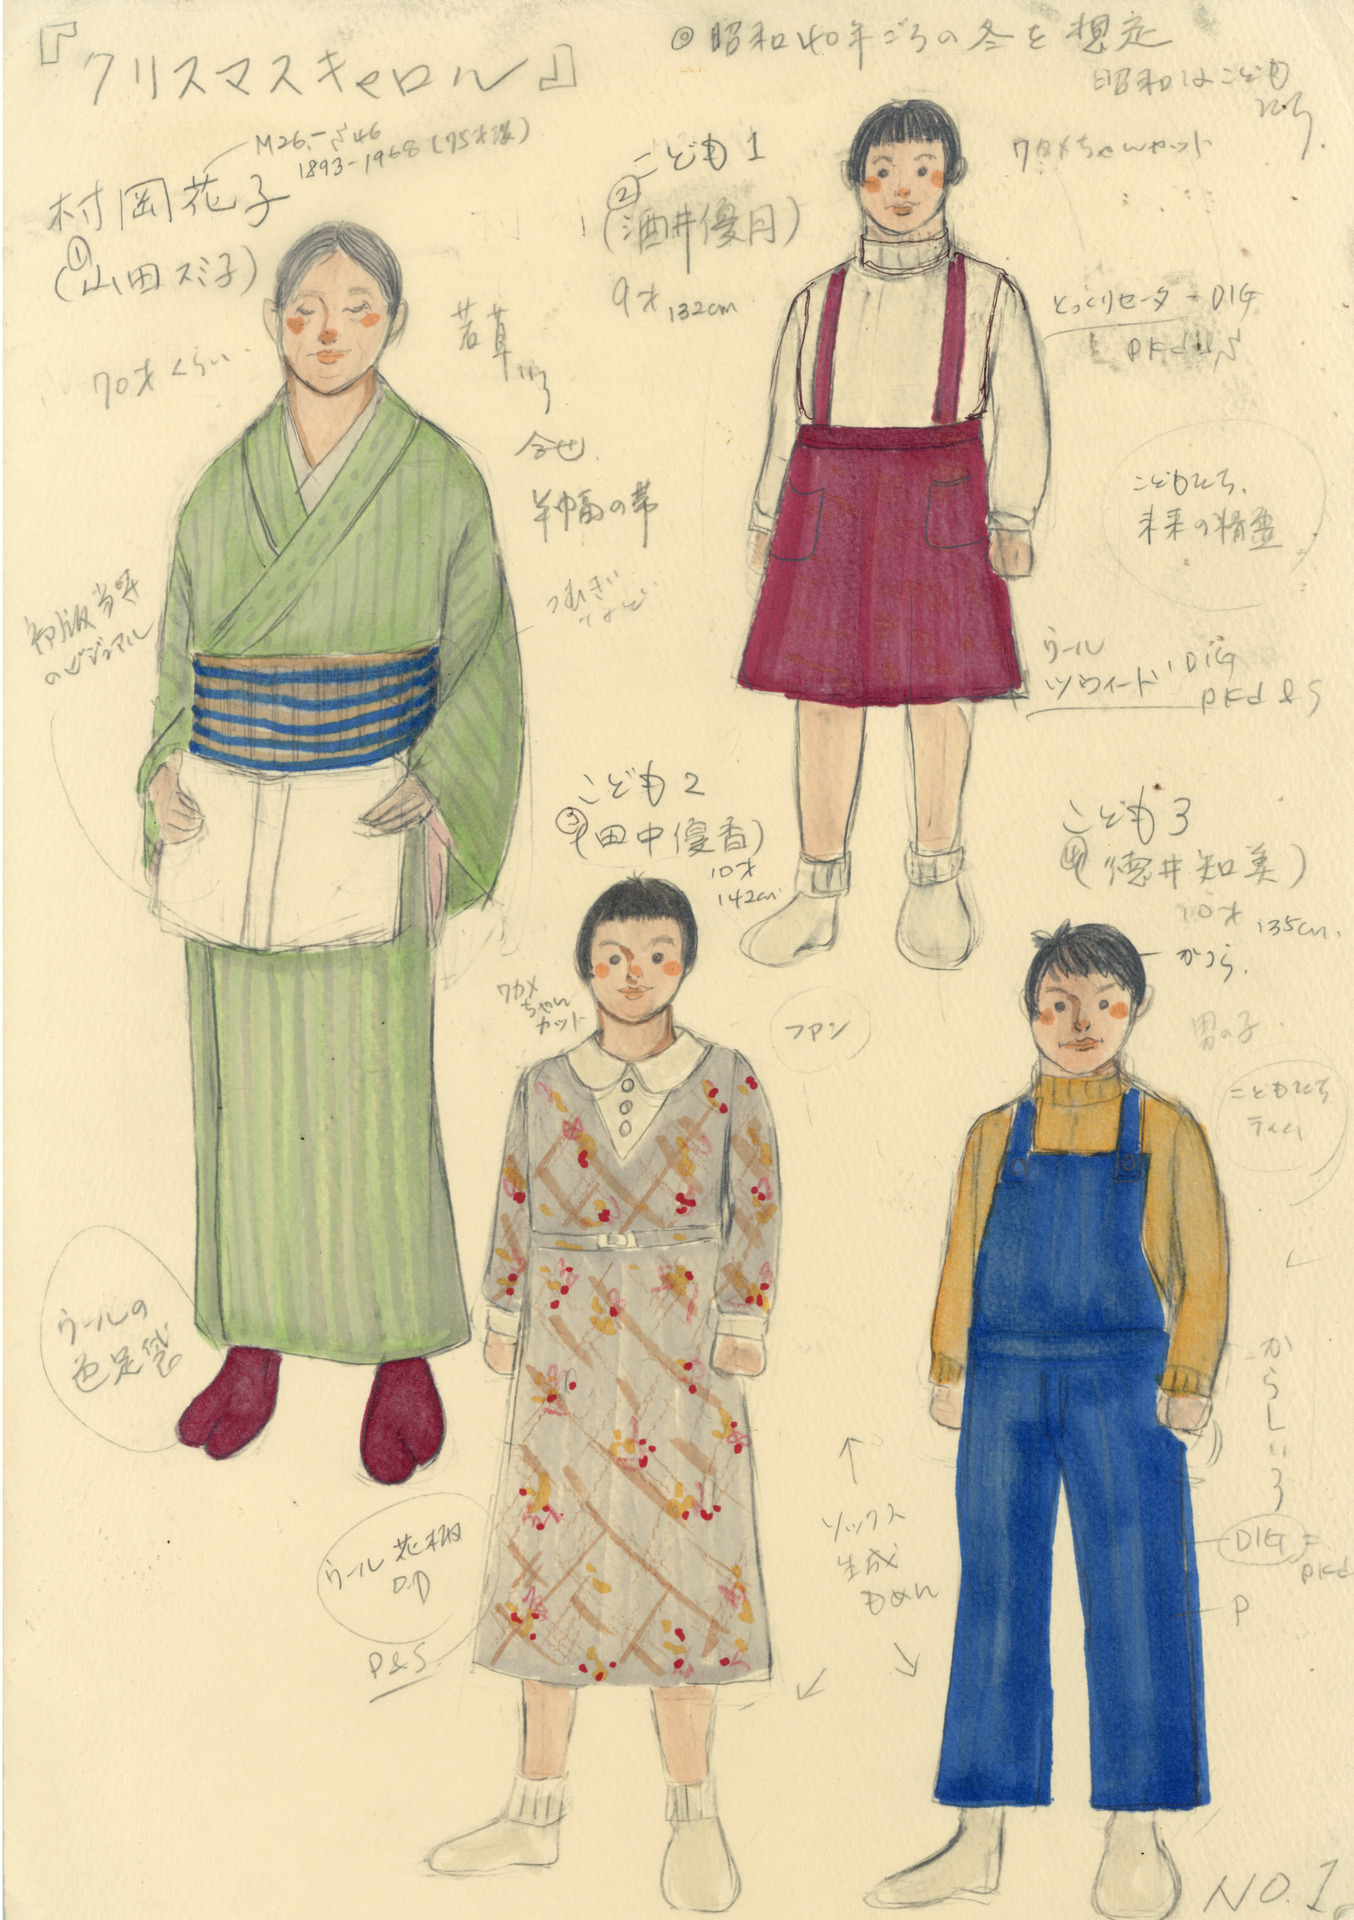 『クリスマスキャロル』
◎昭和40年ごろの冬を想定
昭和はこども
M26.-S46
1893-1968(75才没)
村岡花子
①
(山田スミ子)
70才くらい
若草
いろ
合せ
半幅の帯
つむぎ
など
初版当時
のビジュアル
ウールの
色足袋
こども1
②
(酒井優月)
9才 132cm
ワカメちゃんカット
とっくりセーター DIG
こどもたち、
未来の精霊
ウール
ツウィード DIG
PKd & S
こども2
③
(田中優香)
10才
142cm
ワカメ
ちゃん
カット
ファン
ウール 花柄
P&S
こども3
④
(徳井知美)
10才 135cm
かつら
男の子
こどもたち
ティム
からしいろ
DIG
P
ソックス
生成
もめん
NO.1